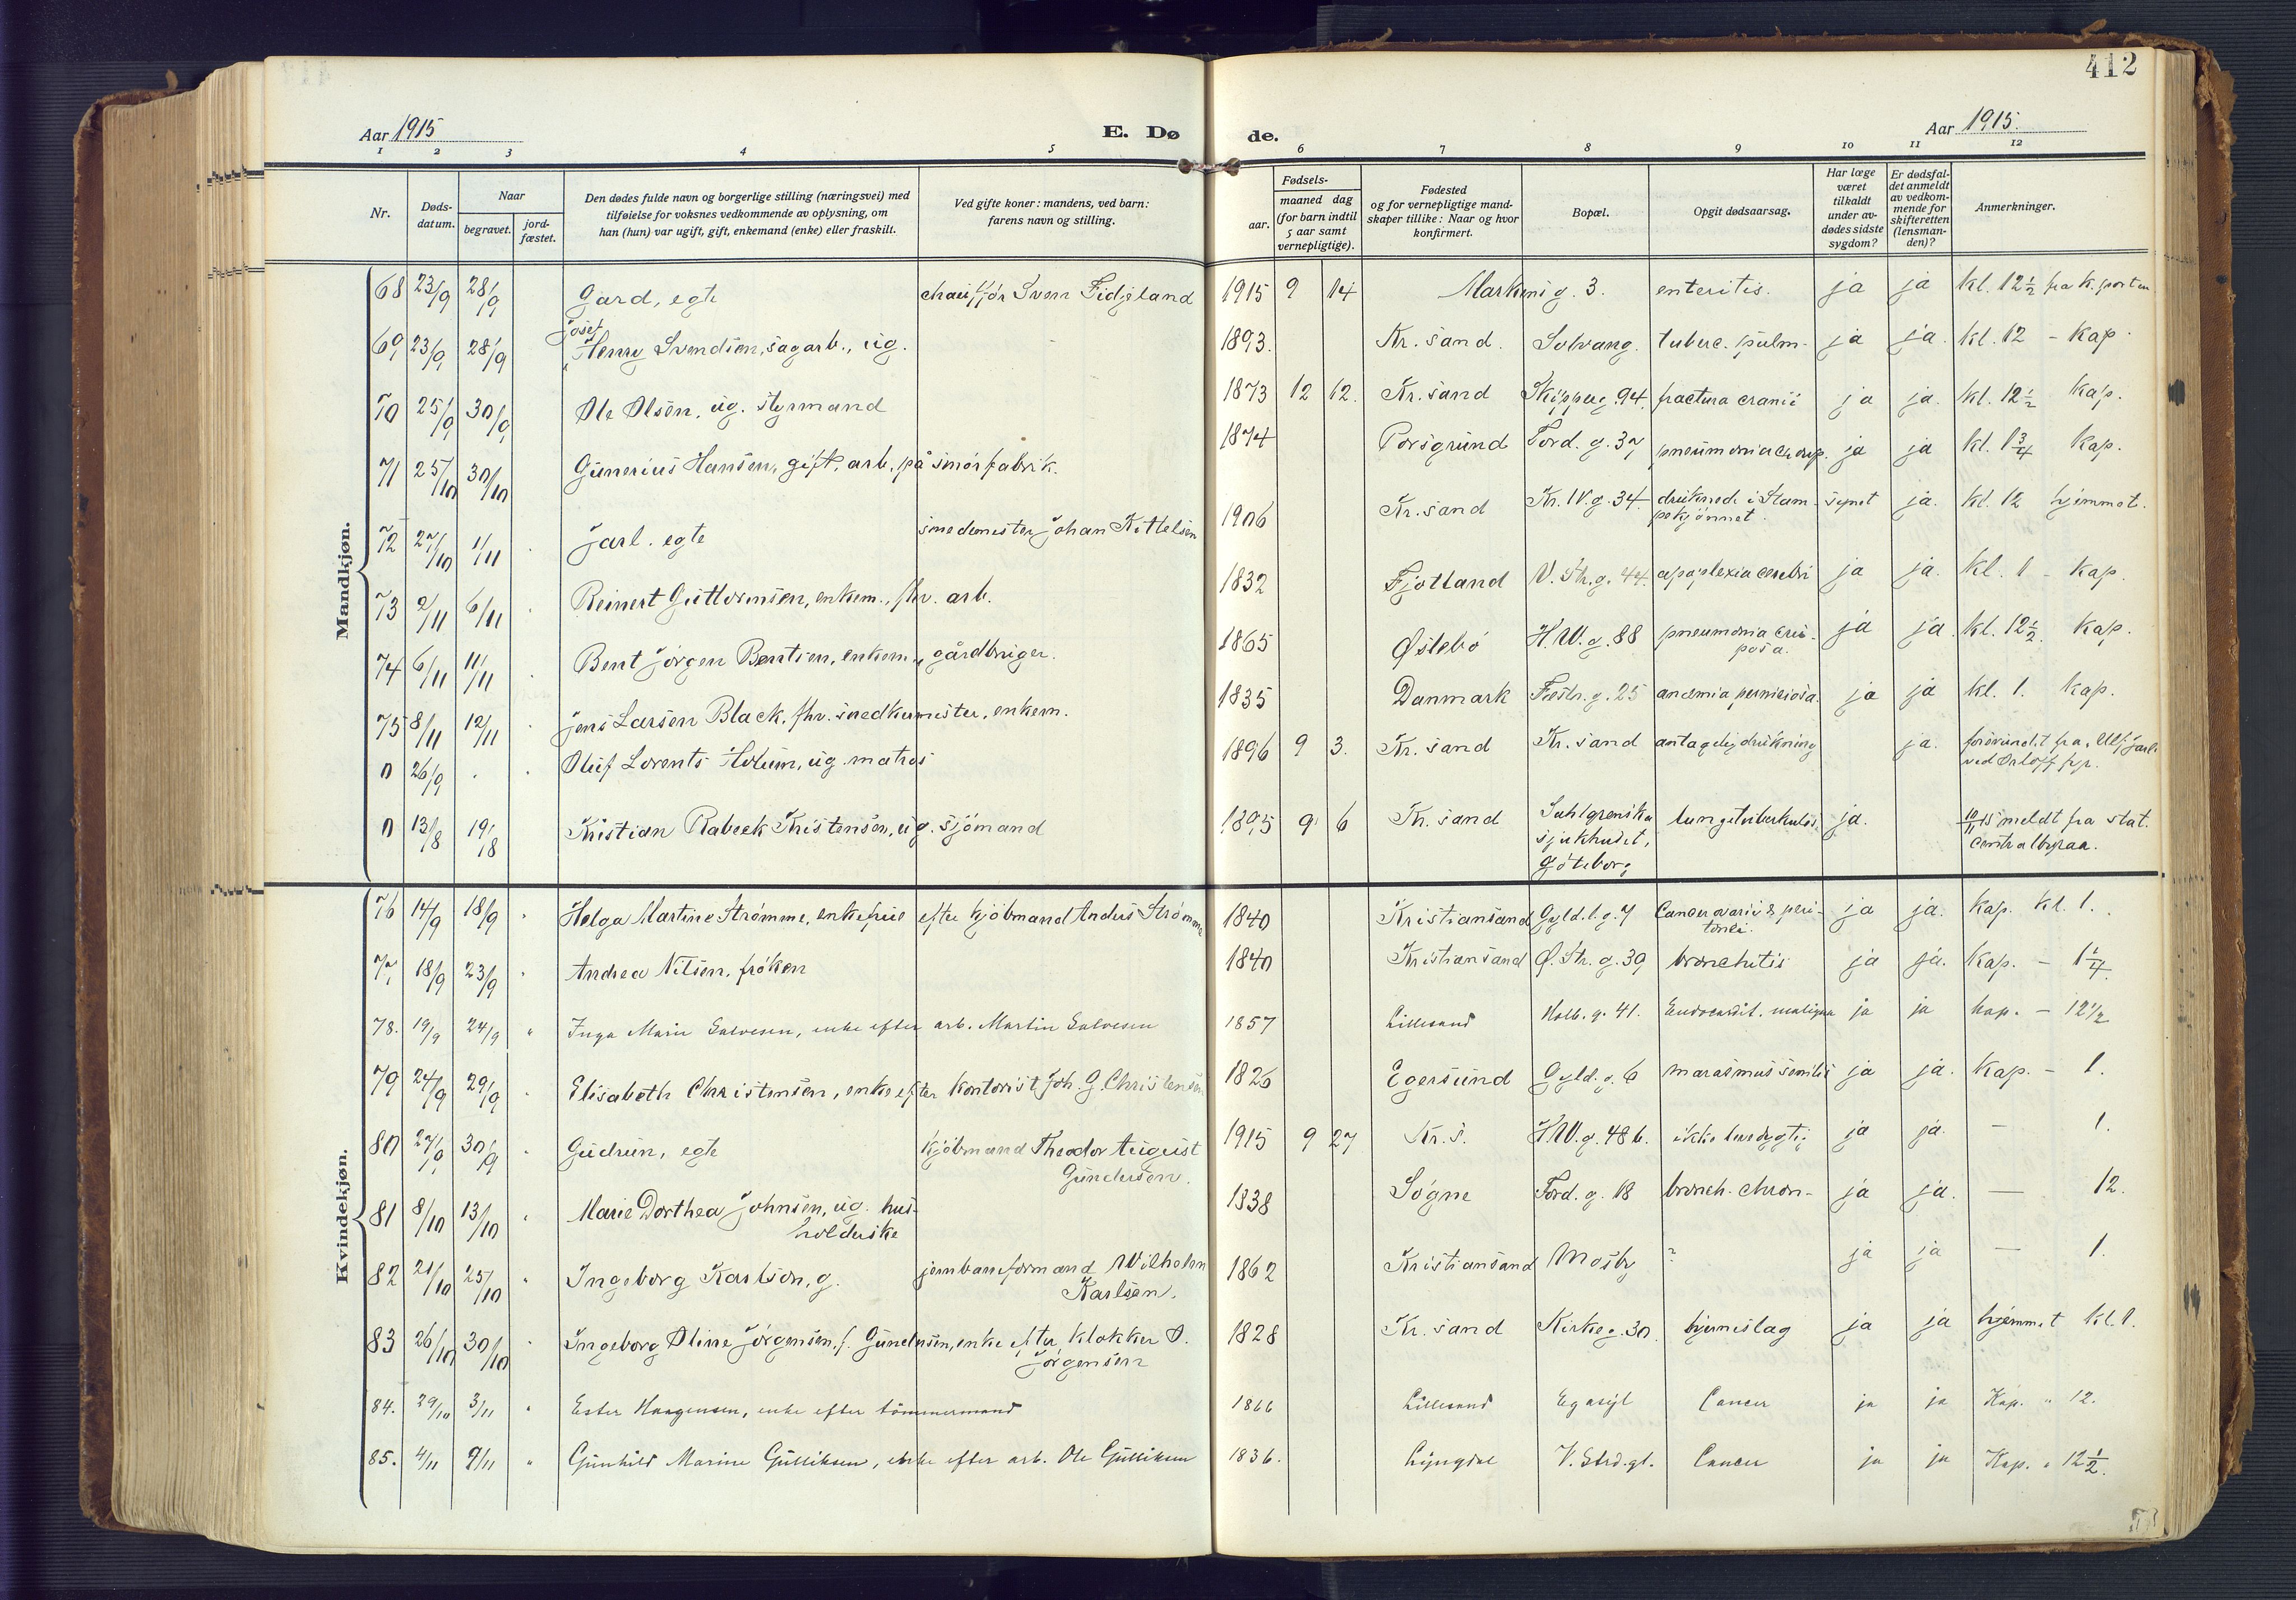 412
Aar 1915 E. Dø de. Aar 1915.
1 2 3 4 5 6 7 8 9 10 11 12
Nr. Døds-datum. Naar begravet. jord-fæstet. Den dødes fulde navn og borgerlige stilling (næringsvei) med tilføielse for voksnes vedkommende av oplysning, om han (hun) var ugift, gift, enkemand (enke) eller fraskilt. Ved gifte koner: mandens, ved barn: farens navn og stilling. Fødsels- aar. maaned dag (for barn indtil 5 aar samt vernepligtige). Fødested og for vernepligtige mand-skaper tillike: Naar og hvor konfirmert. Bopæl. Opgit dødsaarsag. Har læge været tilkaldt under av-dødes sidste sygdom? Er dødsfal-det anmeldt av vedkom-mende for skifteretten (lensman-den)? Anmerkninger.
Mandkjøn.
68 23/9 28/9 Gard, egte chauffør Sven Fidjeland 1915 9 14 Markens g. 3. enteritis. ja ja kl. 12½ fra k. porten
Josef
69 23/9 28/9 Henry Svendsen, sagarb., ug. 1893. Kr. sand. Solvang. tuberc. pulm. ja ja. kl. 12 - Kap.
70 25/9 30/9 Ole Olsen, ug. styrmand 1873 12 12. Kr. sand Skipperg. 94. fractura cranii ja ja. kl. 12½ Kap.
71 25/10 30/10 Gunerius Hansen, gift, arb. på smørfabrik. 1874 Porsgrund Tord. g. 37 pneumonia crup. ja ja kl. 1¾ Kap.
72 27/10 1/11 Jarl. egte smedmester Johan Kittelsen 1906 Kr. sand Kr. IV. g. 34. druknede i Stampekjønnet. synet ja. kl. 12 hjemmet.
73 2/11 6/11 Reinert Guttormsen, enkem., fhv. arb. 1832 Fjotland V. Str. g. 44. apoplexia cerebri ja ja. kl. 1 - Kap.
74 6/11 11/11 Bent Jørgen Bentsen, enkem., gårdbruger. 1865 Østebø H. W. g. 88 pneumonia cruposa. ja ja. kl. 12½. Kap.
75 8/11 12/11 Jens Larsen Black, fhv. snedkermester, enkem. 1835 Danmark Festn. g. 25 anæmia perniciosa. ja ja kl. 1. Kap.
0 26/9 Oluf Lorents Holum, ug. matros 1896 9 3. Kr. sand Kr. sand antagelig drukning ja. forsvundet fra Ulf Jarl ved Orloff fyr.
0 13/8 19/8 Kristian Rabeck Kristensen, ug. sjømand 1895 9 6 Kr. sand Sahlgrenska sjukhuset, Göteborg lungetuberkulos. ja. 10/11 15 meldt fra stat. Centralbyraa.
Kvindekjøn.
76 14/9 18/9 Helga Martine Strømme, enkefrue efter kjøbmand Anders Strømme 1840 Kristiansand Gyld. l. g. 7 Cancer ovarii & peritonei. ja ja. Kap. kl. 1.
77 18/9 23/9 Andrea Nilsen, frøken 1840 Kristiansand Ø. Str. g. 39 bronchitis ja ja. Kap. - 1¼.
78. 19/9 24/9 " Inga Marie Salvesen, enke efter arb. Martin Salvesen 1857 Lillesand Holb. g. 41. Endocardit. maligna ja ja kap. - 12½
79 24/9 29/9 Elisabeth Christensen, enke efter kontorist Joh. G. Christensen 1826 Egersund Gyld. g. 6 marasmus senilis ja ja. Kap. - 1.
80 27/9 30/9 Gudrun, egte kjøbmand Theodor August Gundersen. 1915 9 27 Kr. S. H. W. g. 48 b. ikke levedygtig ja ja. — 1.
81 8/10 13/10 Marie Dorthea Johnsen, ug. husholderske 1838 Søgne Tord. g. 18 bronch. chron. ja ja. — 12.
82 21/10 25/10 " Ingeborg Karlson, g. jernbaneformand Wilhelm Karlsen. 1862 Kristiansand Mosby ? ja ja — 1.
83 26/10 30/10 " Ingeborg Oline Jørgensen, f. Gundersen, enke efter klokker O. Jørgensen 1828 Kr. sand Kirkeg. 30. hjerneslag ja ja hjemmet kl. 1.
84. 29/10 3/11 " Ester Haagensen, enke efter tømmermand 1866 Lillesand Egasyl Cancer ja ja Kap. " 12.
85. 4/11 9/11 " Gunhild Marine Gulliksen, enke efter arb. Ole Gulliksen 1836. Lyngdal V. Strd. gt. Cancer ja ja Kap. " 12½.